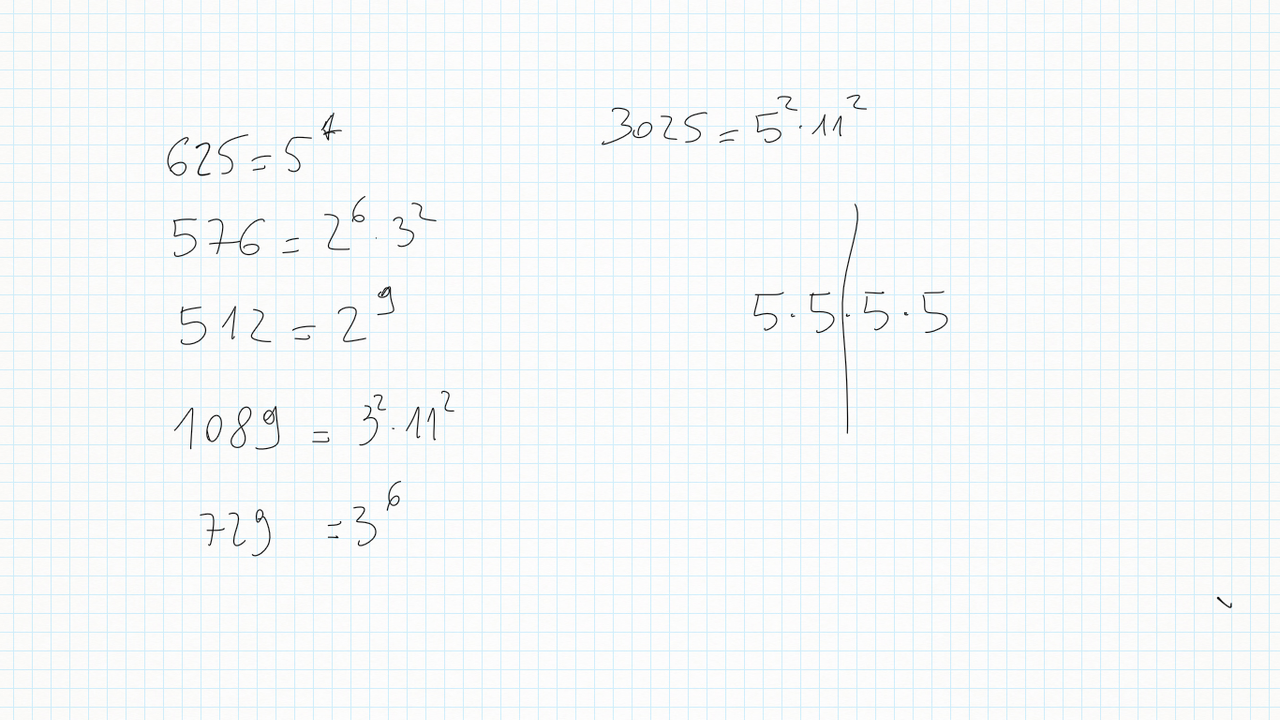 625 = 5⁴
576 = 2⁶ · 3²
512 = 2⁹
1089 = 3² · 11²
729 = 3⁶
3025 = 5² · 11²
5 · 5 | · 5 · 5